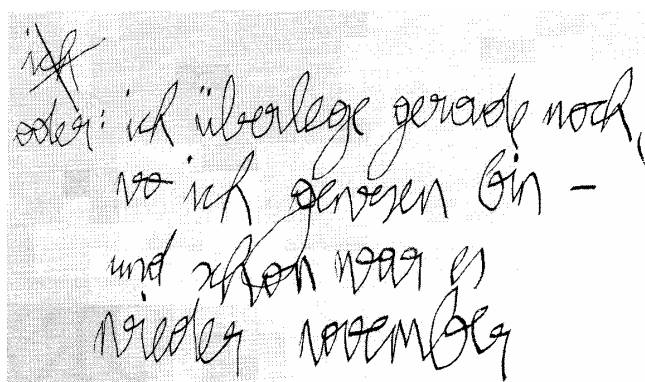 ich
oder: ich überlege gerade noch,
wo ich gewesen bin –
und schon war es
wieder november